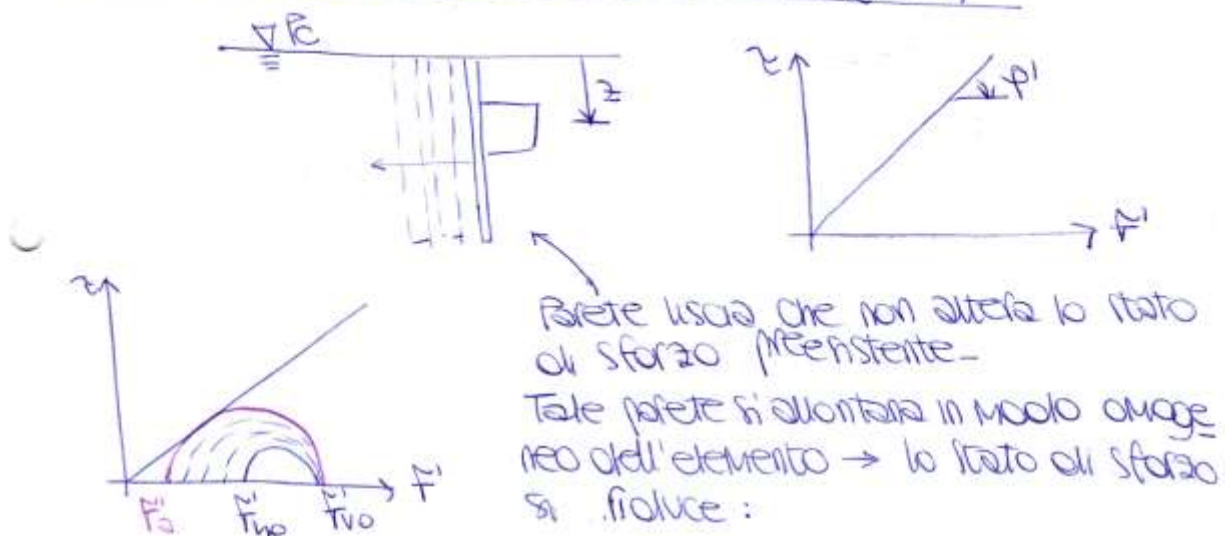 PC
z
τ
φ'
σ'
Parete liscia che non altera lo stato
di sforzo preesistente-
Tale parete si allontana in modo omoge
neo dell'elemento → lo stato di sforzo
si riduce:
τ
σ'
σ'a
σ'ho
σ'vo